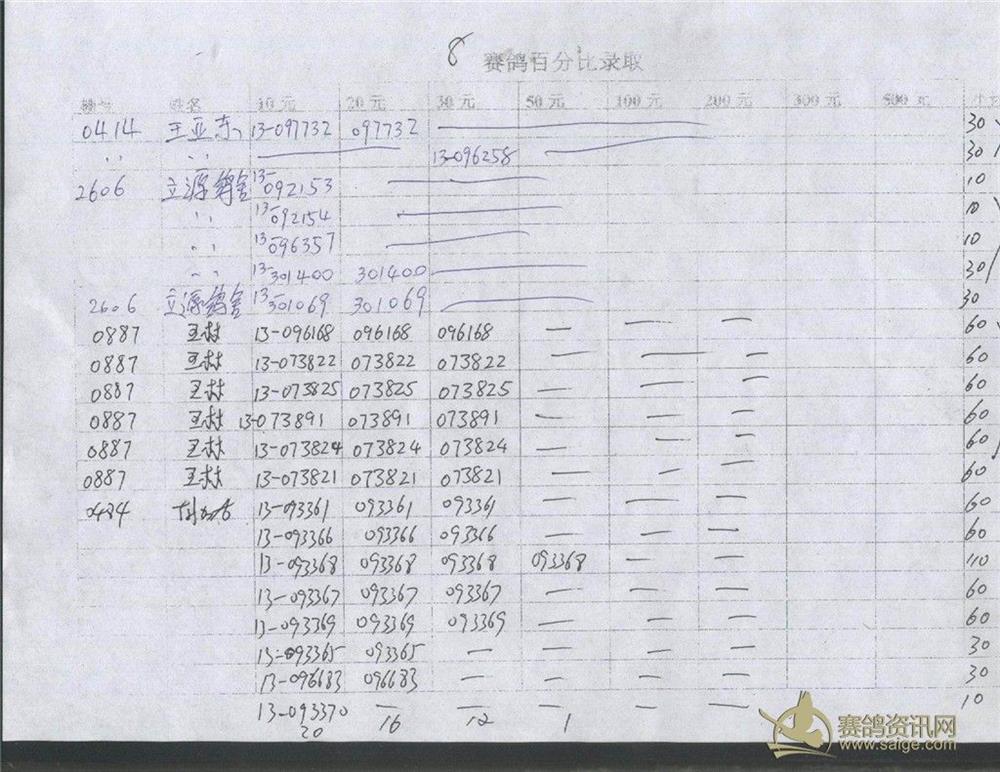 8 赛鸽百分比录取
棚号 姓名 10元 20元 30元 50元 100元 200元 300元 500元
0414 王亚东 13-097732 097732 — 30
〃 〃 — 13-096258 — 30
2606 立源鸽舍 13-092153 — 10
〃 13-092154 — 10
〃 13-096357 — 10
〃 13-301400 301400 — 30
2606 立源鸽舍 13-301069 301069 — 30
0887 王林 13-096168 096168 096168 — — — 60
0887 王林 13-073822 073822 073822 — — — 60
0887 王林 13-073825 073825 073825 — — — 60
0887 王林 13-073891 073891 073891 — — — 60
0887 王林 13-073824 073824 073824 — — — 60
0887 王林 13-073821 073821 073821 — — — 60
13-093361 093361 093361 — — — 60
13-093366 093366 093366 — — — 60
13-093368 093368 093368 093368 — — 110
13-093367 093367 093367 — — — 60
13-093369 093369 093369 — — — 60
13-093365 093365 — — — — 30
13-096683 096683 — — — — 30
13-093370 — — — — — 10
20 16 12 1
赛鸽资讯网
www.saige.com